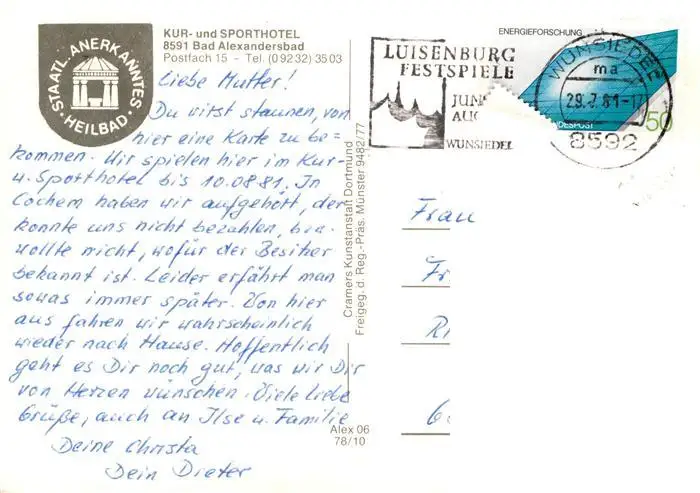 STAATL. ANERKANNTES · HEILBAD ·
KUR- und SPORTHOTEL
8591 Bad Alexandersbad
Postfach 15 - Tel. (0 92 32) 35 03
Liebe Mutter!
Du wirst staunen, von
hier eine Karte zu be=
kommen. Wir spielen hier im Kur-
u. Sporthotel bis 10.08.81. In
Cochem haben wir aufgehört, der
konnte uns nicht bezahlen, bzw.
wollte nicht, wofür der Besitzer
bekannt ist. Leider erfährt man
sowas immer später. Von hier
aus fahren wir wahrscheinlich
wieder nach Hause. Hoffentlich
geht es Dir noch gut, was wir Dir
von Herzen wünschen. Viele liebe
Grüße, auch an Ilse u. Familie
Deine Christa
Dein Dieter
Cramers Kunstanstalt Dortmund
Freigeg. d. Reg.-Präs. Münster 9482/77
Alex 06
78/10
LUISENBURG
FESTSPIELE
JUNI
AUG
WUNSIEDEL
ENERGIEFORSCHUNG
DESPOST
50
WUNSIEDEL
ma
29.7.81-17
8592
Frau
Fr
R